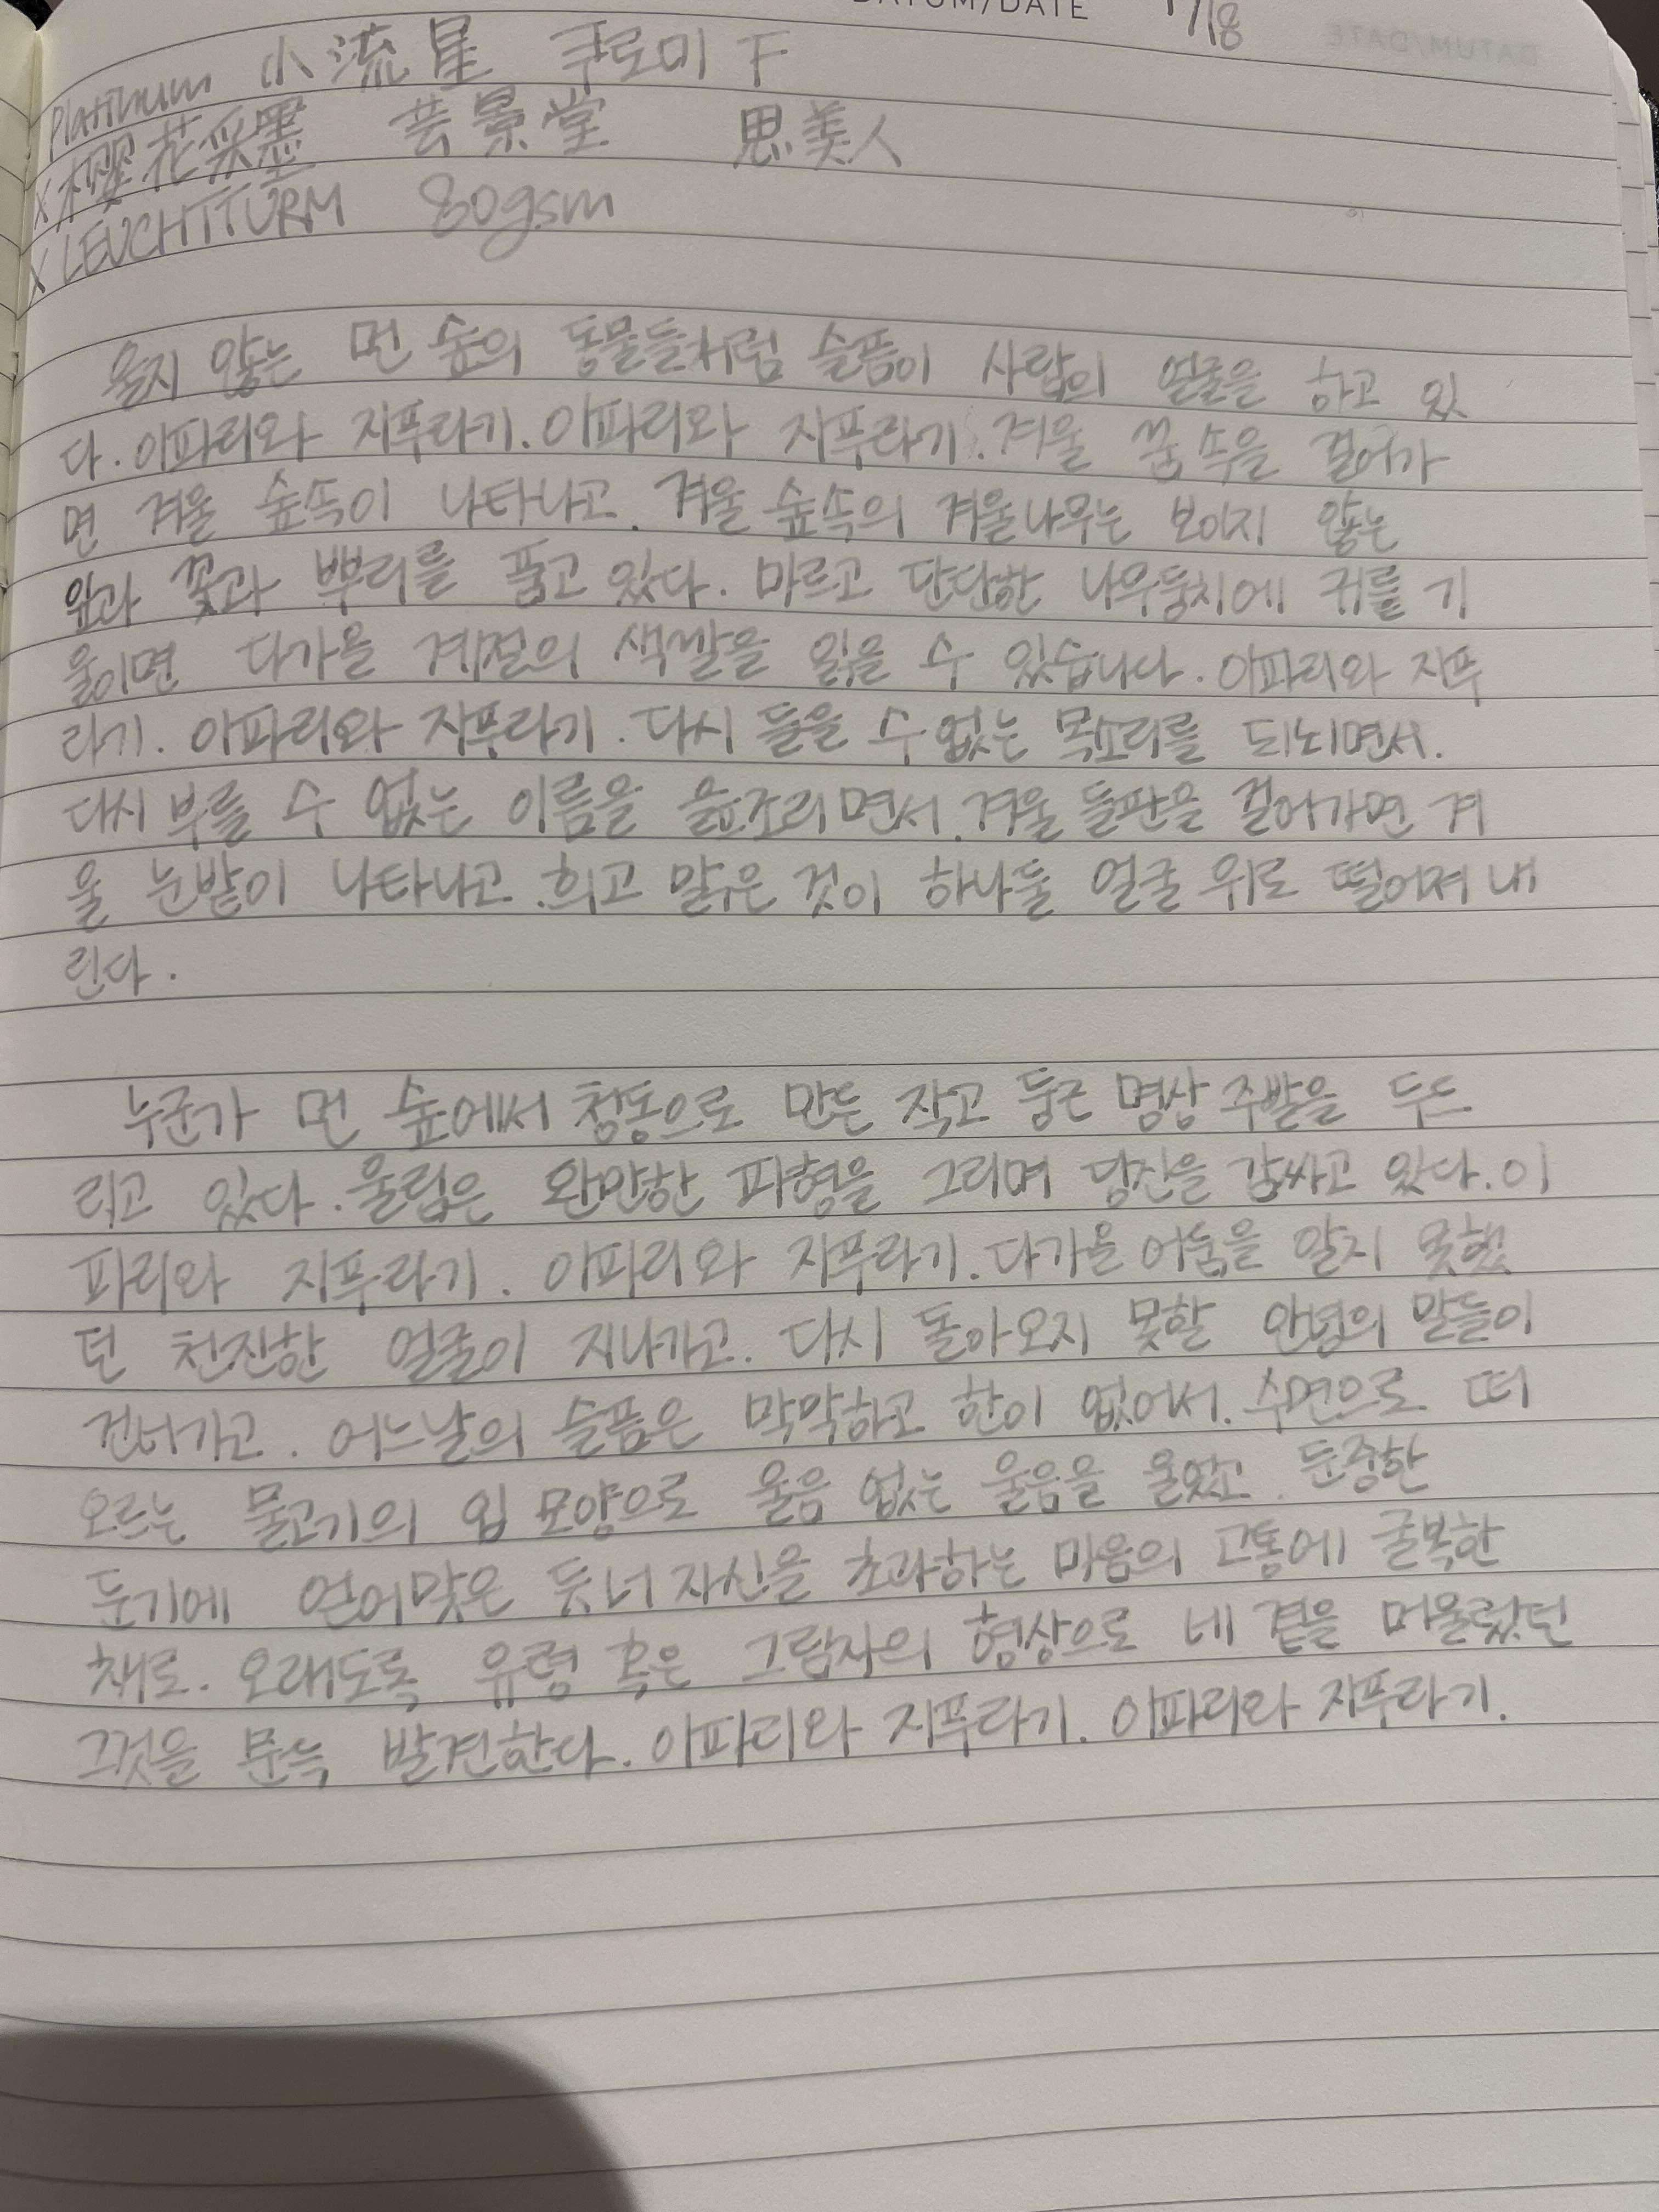 DATUM/DATE 1/18
Platinum 小流星 쿠로미 F
X 樱花采墨 芸景堂 思美人
X LEUCHTTURM 80gsm
울지 않는 먼 숲의 동물들처럼 슬픔이 사람의 얼굴을 하고 있
다. 이파리와 지푸라기. 이파리와 지푸라기. 겨울 꿈 속을 걸어가
면 겨울 숲속이 나타나고. 겨울 숲속의 겨울나무는 보이지 않는
잎과 꽃과 뿌리를 품고 있다. 마르고 단단한 나무둥치에 귀를 기
울이면 다가올 계절의 색깔을 읽을 수 있습니다. 이파리와 지푸
라기. 이파리와 지푸라기. 다시 들을 수 없는 목소리를 되뇌면서.
다시 부를 수 없는 이름을 읊조리면서. 겨울 들판을 걸어가면 겨
울 눈밭이 나타나고. 희고 맑은 것이 하나둘 얼굴 위로 떨어져 내
린다.
누군가 먼 숲에서 청동으로 만든 작고 둥근 명상 주발을 두드
리고 있다. 울림은 완만한 파형을 그리며 당신을 감싸고 있다. 이
파리와 지푸라기. 이파리와 지푸라기. 다가올 어둠을 알지 못했
던 천진한 얼굴이 지나가고. 다시 돌아오지 못할 안녕의 말들이
건너가고. 어느날의 슬픔은 막막하고 한이 없어서. 수면으로 떠
오르는 물고기의 입 모양으로 울음 없는 울음을 울었고. 둔중한
둔기에 얻어맞은 듯 너 자신을 초과하는 마음의 고통에 굴복한
채로. 오래도록 유령 혹은 그림자의 형상으로 네 곁을 머물렀던
그것을 문득 발견한다. 이파리와 지푸라기. 이파리와 지푸라기.